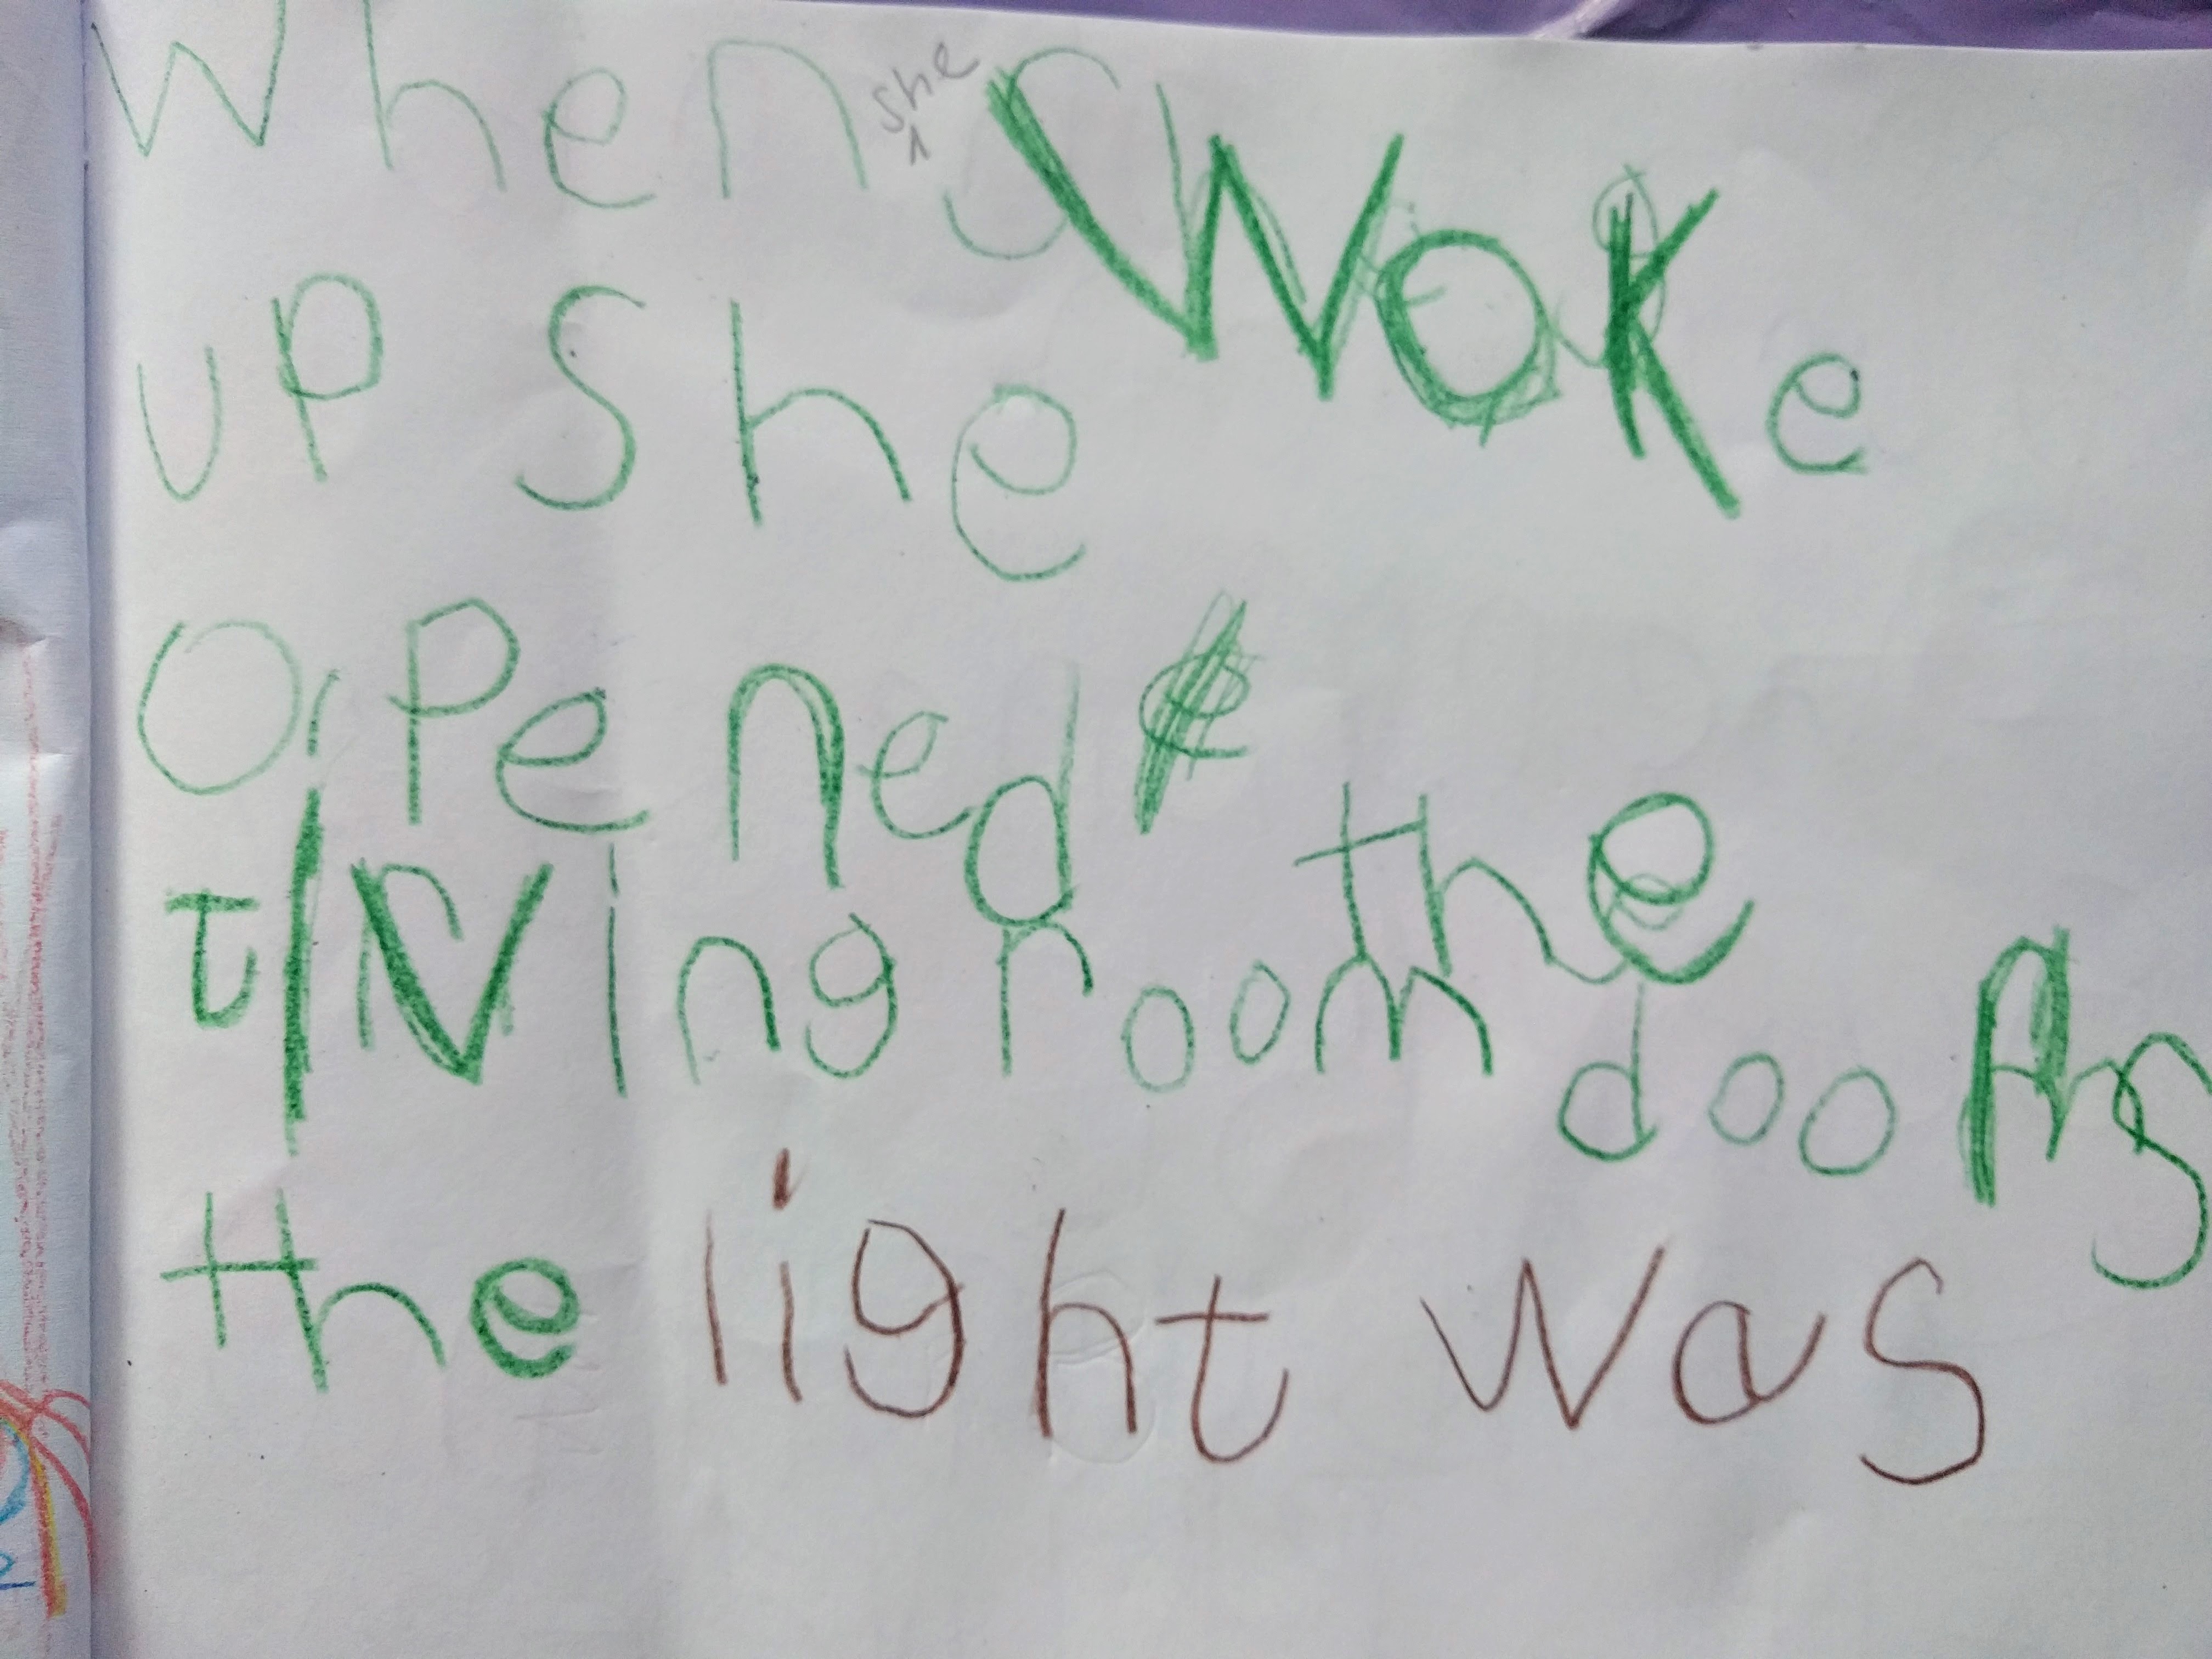 When she woke
up she
opened the
living room doors
the light was